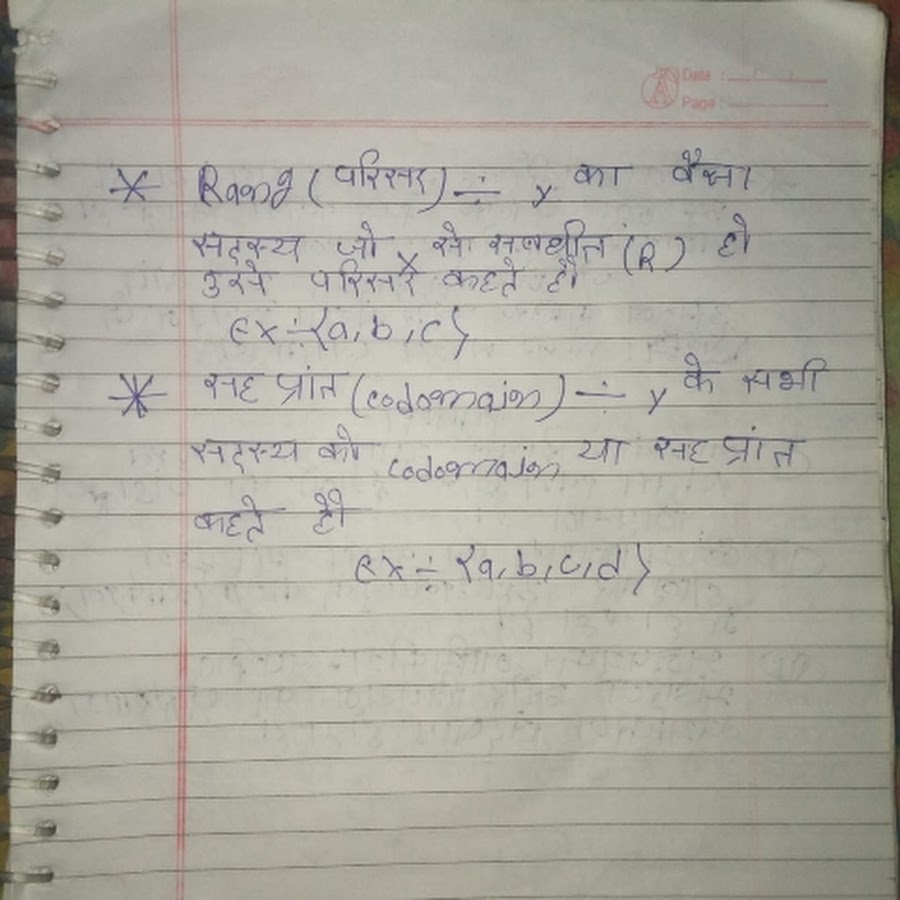 Date :
Page :
* Raang (परिसर) ÷ y का वैसा
सदस्य जो x से सम्बधीत (R) हो
उसे परिसर कहते हैं।
ex ÷ {a, b, c}
* सह प्रांत (codomain) ÷ y के सभी
सदस्य को codomain या सह प्रांत
कहते हैं।
ex ÷ {a, b, c, d}